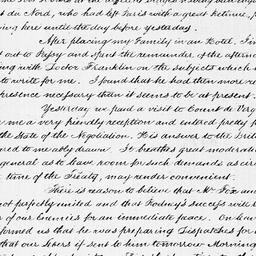 du Nord, who had left Paris with a great retinue,
here until the day before yesterday.
After placing my Family in an Hotel,
out to Passy and spent the remainder of the afternoon
with Doctor Franklin on the subjects which
to write for me. I found that he had then more
presence necessary than it seems to be at present.
Yesterday we paid a visit to Count de
me a very friendly reception and entered pretty
the State of the Negotiation. His answer to the
to me ably drawn. It breathes great moderation
general as to leave room for such demands as
time of the Treaty, may render convenient.
There is reason to believe that Mr. Fox and
not perfectly united and that Rodney's success will
of our Enemies for an immediate peace. On
formed us that he was preparing Dispatches for
that our Letters if sent to him tomorrow Morning